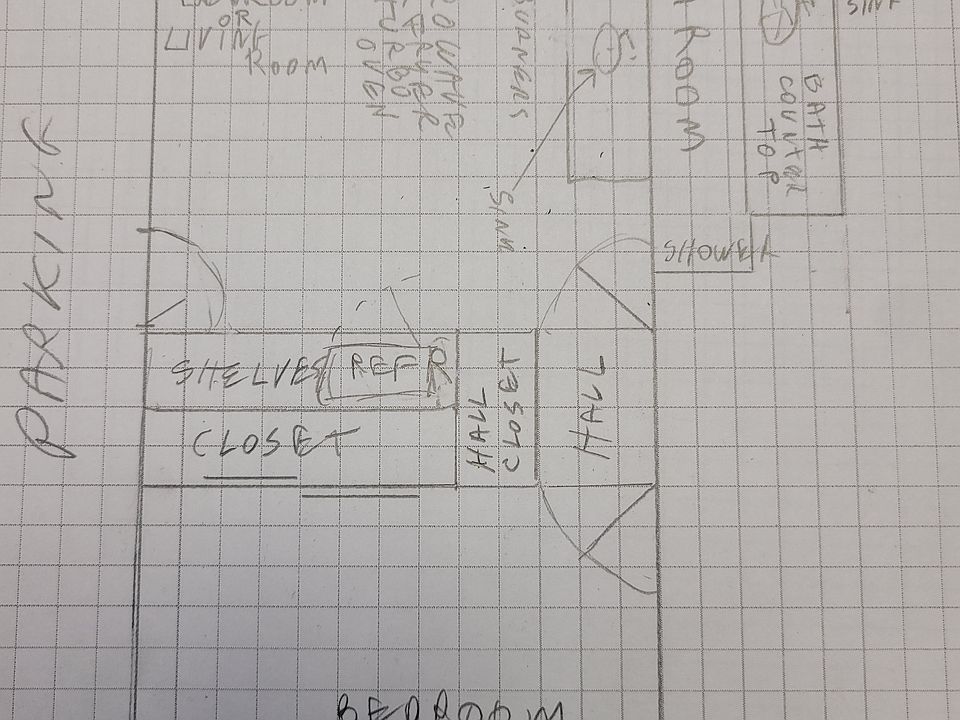 OR
LIVING
ROOM
OVEN
BURNERS
ROOM
SINK
BATH
COUNTER
TOP
SINK
SHOWER
PARKING
SHELVES
REFR
CLOSET
HALL
CLOSET
HALL
BEDROOM